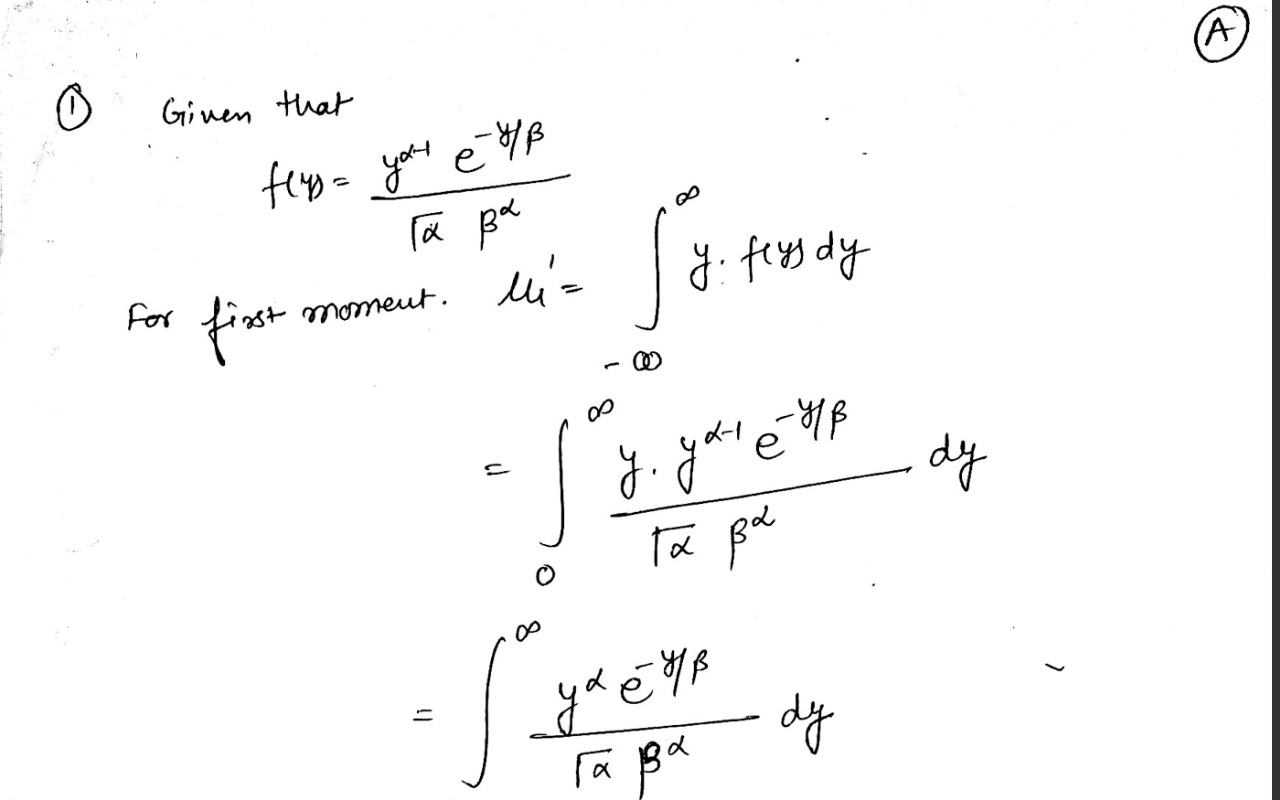 A
① Given that
f(y) = y^{α-1} e^{-y/β} / (Γα β^α)
For first moment. μ₁' = ∫_{-∞}^{∞} y. f(y) dy
= ∫_{0}^{∞} y. y^{α-1} e^{-y/β} / (Γα β^α) dy
= ∫^{∞} y^α e^{-y/β} / (Γα β^α) dy